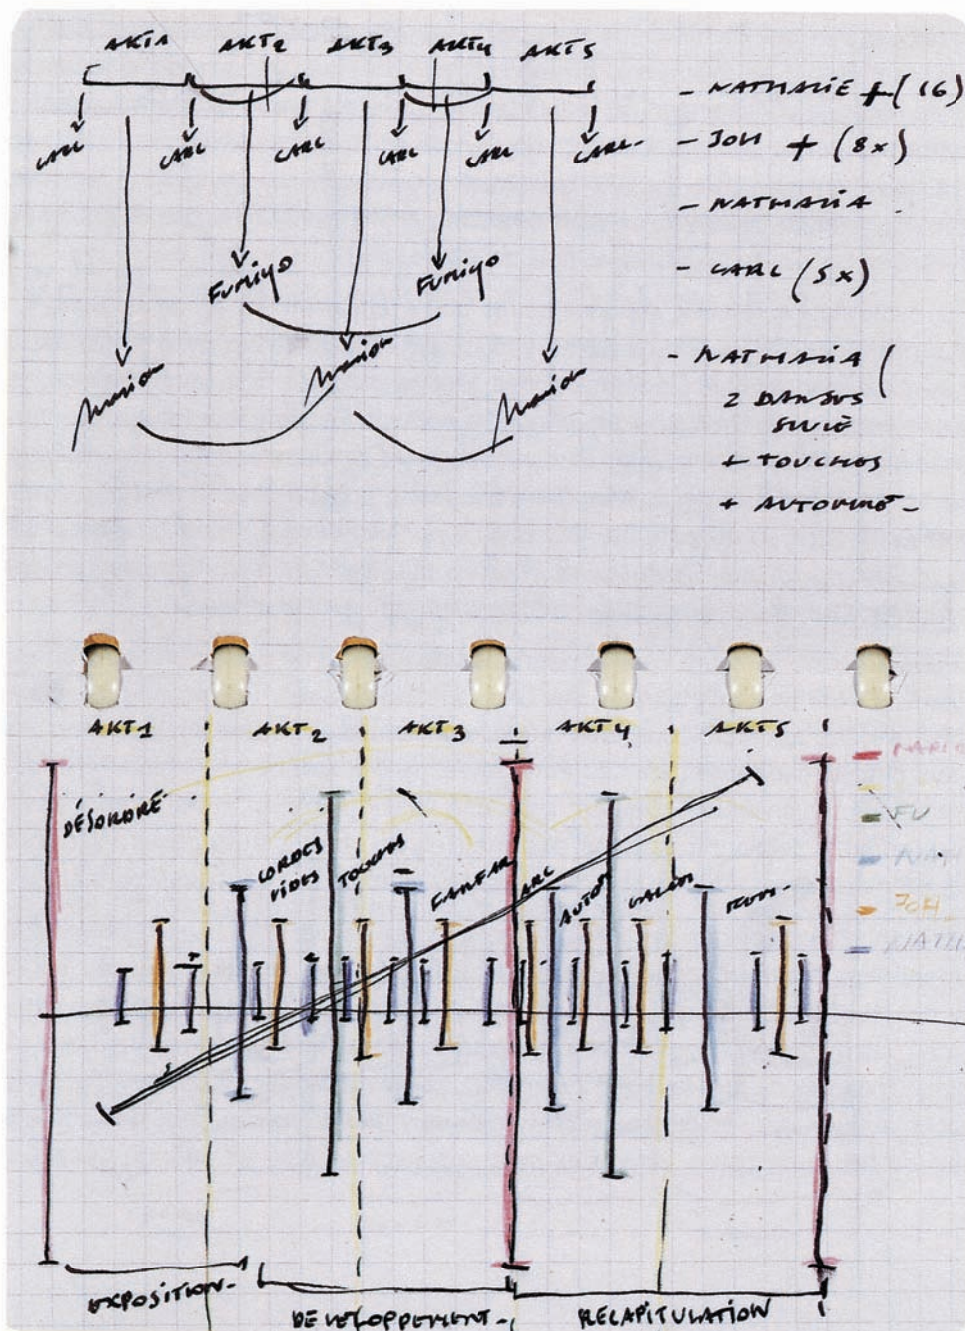 AKT1 AKT2 AKT3 AKT4 AKT5
CARL CARL CARL CARL CARL CARL-
Fumiyo Fumiyo
Marion Marion Marion
- NATHALIE + (16)
- JOH + (8x)
- NATHALIA
- CARL (5x)
- NATHALIA (
2 DANSES
+ TOUCHES
AKT1 AKT2 AKT3 AKT4 AKT5
DÉSORDRE
CORDES
VIDES
TOUCHES
FANFAR
ARC
AUTO
FU
NATH
JOH
NATH
EXPOSITION-
DEVELOPPEMENT-
RECAPITULATION